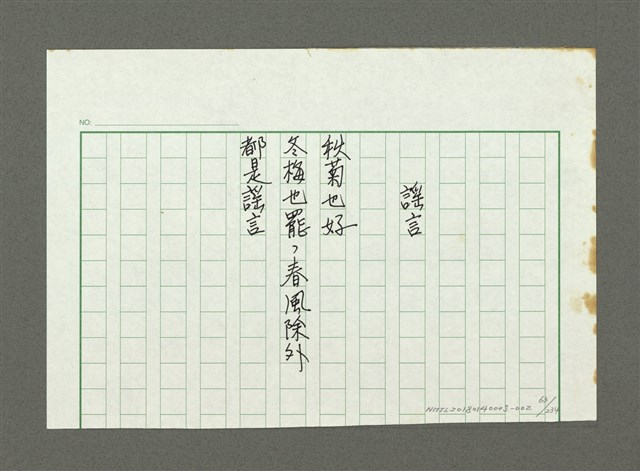 NO:
謠言
秋菊也好
冬梅也罷、春風除外
都是謠言
NMTL20180140003-002
68/234